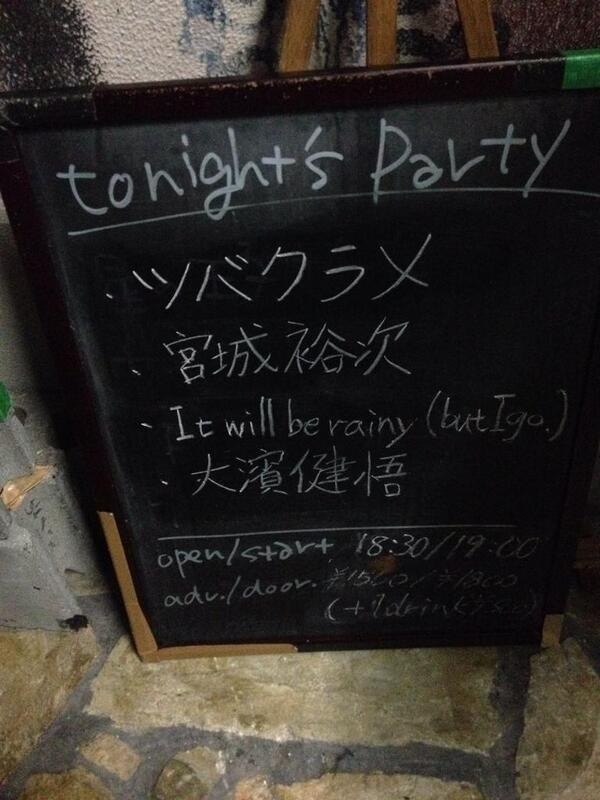 tonight's Party
・ツバクラメ
・宮城裕次
・It will be rainy (but I go.)
・大濱健悟
open/start 18:30/19:00
adv./door. ¥1500/¥1800
(+1drink